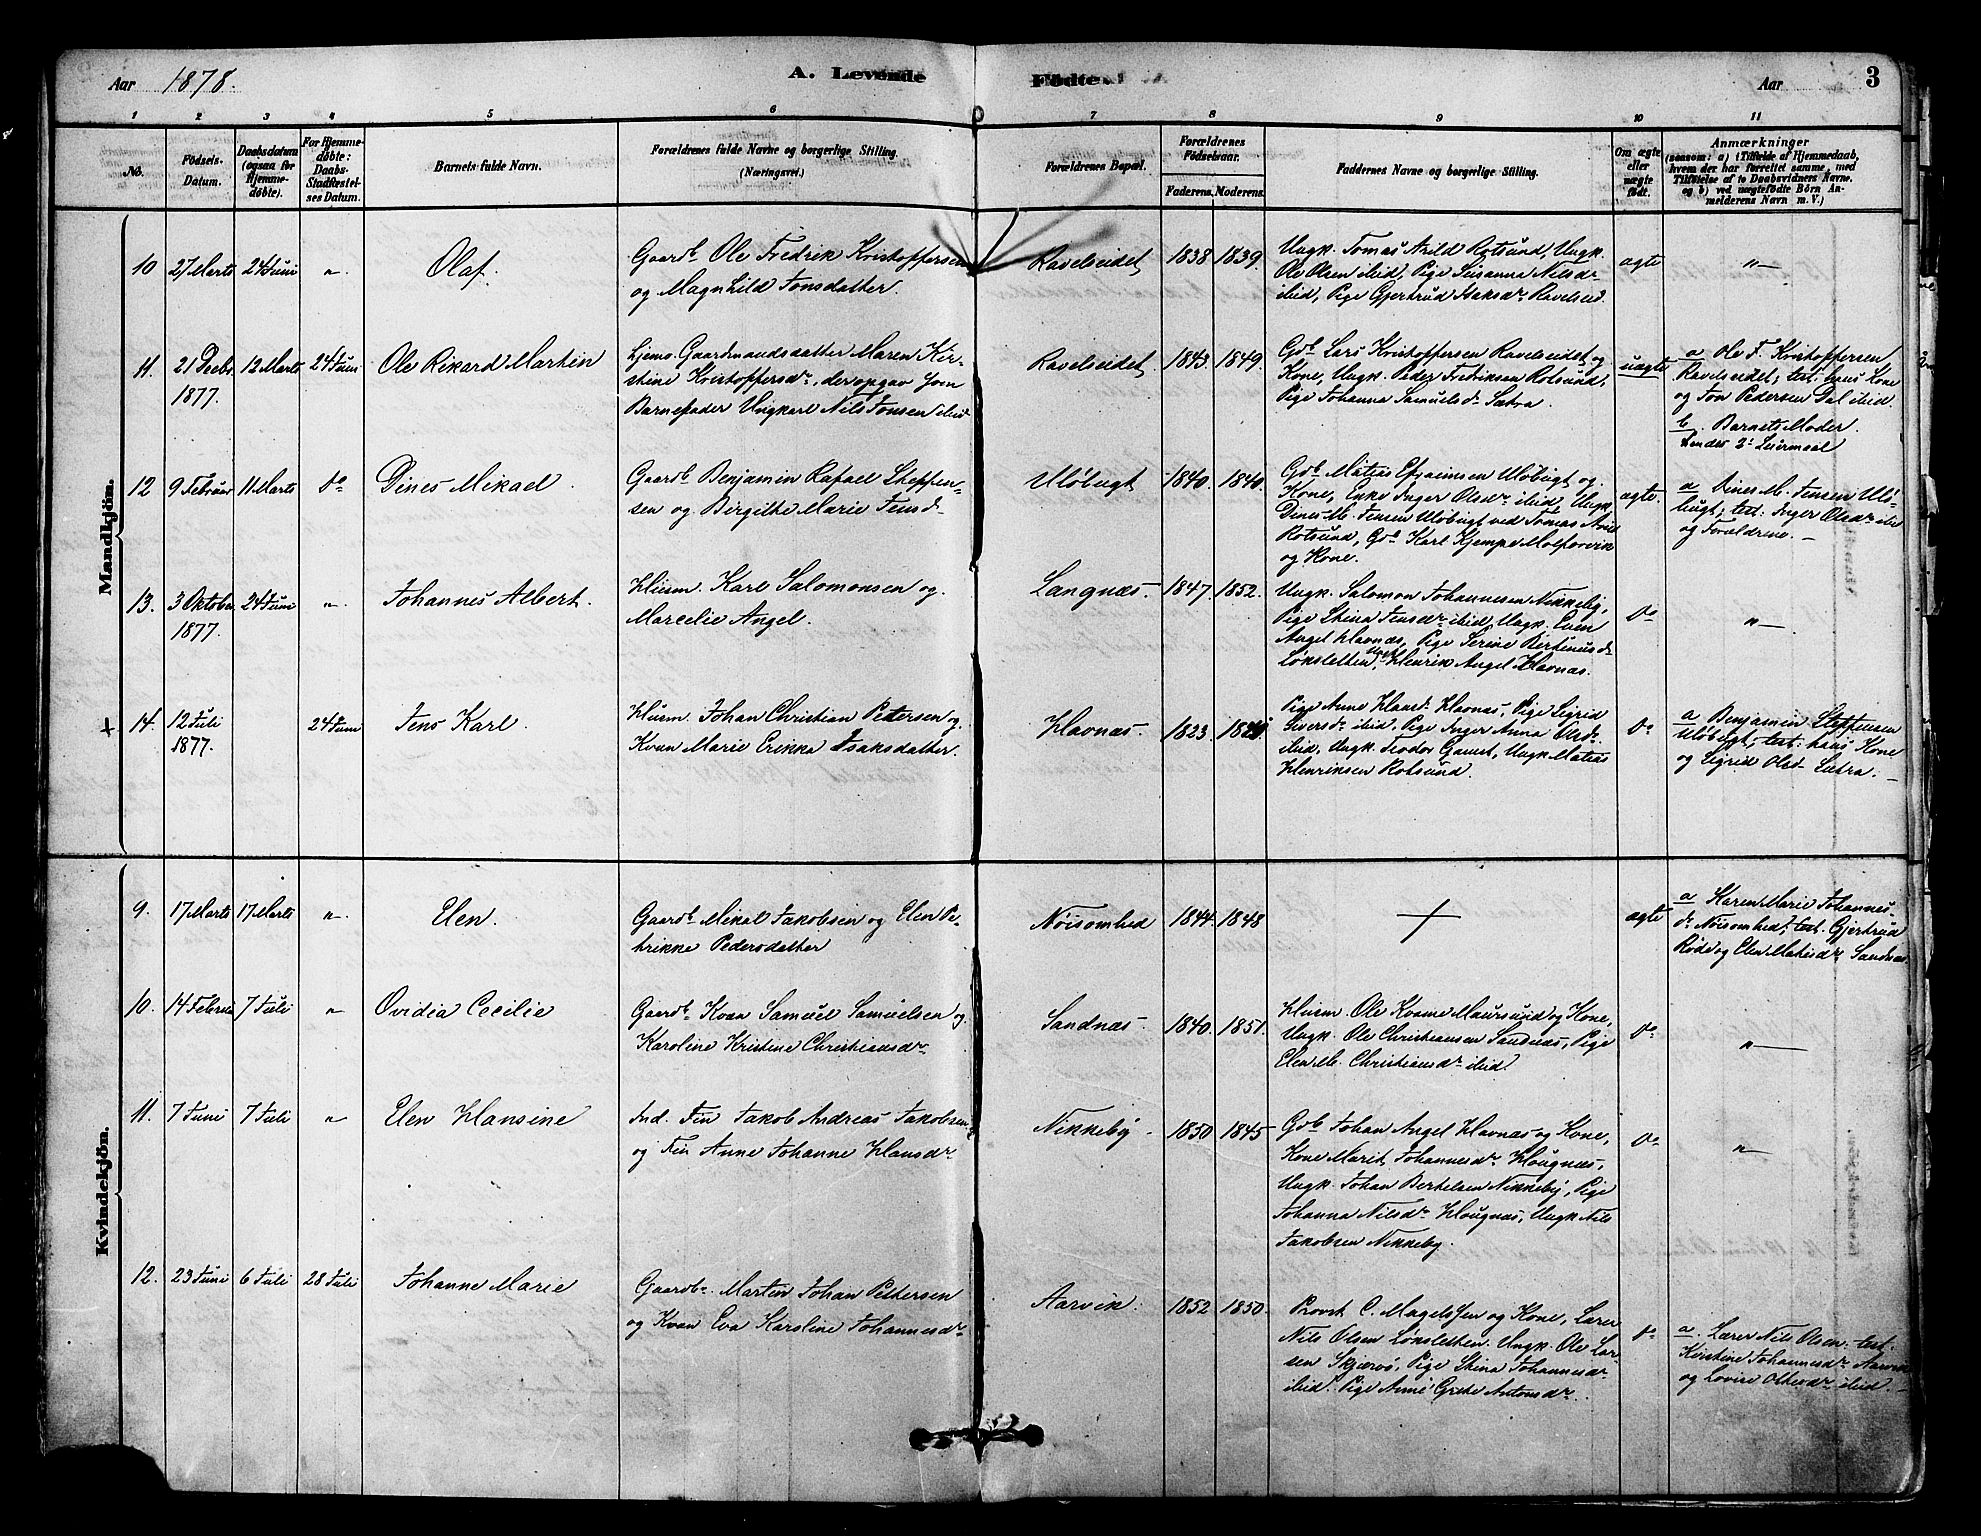 Aar 1878.
A. Levende Fødte.
Aar
3
1 2 3 4 5 6 7 8 9 10 11
No.
Fødsels-Datum.
Daabsdatum (ogsaa for Hjemmedøbte).
For Hjemmedøbte: Daabs-Stadfestelses Datum.
Barnets fulde Navn.
Forældrenes fulde Navne og borgerlige Stilling. (Næringsvei.)
Forældrenes Bopæl.
Forældrenes Fødselsaar.
Faderens. Moderens.
Faddernes Navne og borgerlige Stilling.
Om ægte eller uægte født.
Anmærkninger
(saasom: a) i Tilfælde af Hjemmedaab, hvem der har forrettet samme, med Tilføielse af to Daabsvidners Navne, og b) ved uægtefødte Børn Anmelderens Navn m. V.)
Mandkjön.
10 27 Marts 24 Juni " Olaf.
Gaardb. Ole Fredrik Kristoffersen
og Magnhild Jonsdatter.
Ravelseidet 1838 1839.
Ungk. Tomas Arild Rotsund, Ungk.
Ole Olsen ibid, Pige Susanna Nilsdr
ibid, Pige Gjertrud Isaksdr Ravelseid.
ægte "
11. 21 Decbr. 1877. 12 Marts 24 Juni Ole Rikard Martin
Gaardmandsdatter Maren Kir-
stine Kristoffersdr, der opgav som
Barnefader Ungkarl Nils Jonsen ibid
Ravelseidet 1843. 1849.
Gdb. Lars Kristoffersen Ravelseidet og
Kone, Ungk. Peder Fredriksen Rotsund,
Pige Johanna Samuelsdr Sætra.
uægte
a Ole F. Kristoffersen
Ravelseidet; test: hans Kone
og Jon Pedersen Dal ibid.
b. Barnets Moder.
Lendes 2d Leiermaal
12 9 Februar 11 Marts do Dines Mikael.
Gaardb Benjamin Rafael Steffen-
sen og Birgithe Marie Jensdr
Uløbugt 1840. 1840.
Gdb Matias Efraimsen Uløbugt og
Kone, Enke Inger Olsdr ibid, Ungk
Dines M. Jensen Uløbugt ved Tomas Arild
Rotsund, Gdb Karl Kjempe Molforvik
og Kone.
ægte.
a Dines M. Jensen Ulø-
bugt; test: Inger Olsdr ibid
og Forældrene.
13. 3 Oktober 1877. 24 Juni " Johannes Albert.
Husm. Karl Salomonsen og
Marcelie Angel.
Langnæs. 1847. 1852.
Ungk. Salomon Johannesen Nikkeby,
Pige Stina Jensdr ibid, Ungk. Even
Angel Havnæs, Pige Serine Bertinusdr
Løksletten, Ungk Henrik Angel Havnæs.
do "
+ 14. 12 Juli 1877. 24 Juni Jens Karl.
Husm. Johan Christian Petersen og
Kvæn Marie Erikka Isaksdatter.
Havnæs. 1823.
Pige Anne Havnæs, Pige Sigrid
Siversdr ibid, Pige Inger Anna Olsdr
ibid, Ungk. Teodor Gamst, Ungk Matias
Henriksen Rotsund.
do
a Benjamin Steffensen
Uløbugt; test: hans Kone
og Sigrid Olsdr Sætra.
Kvindekjön.
9. 17 Marts 17 Marts " Elen.
Gaardb Mikal Jakobsen og Elen Pe-
trikke Pedersdatter
Nöisomhed 1844. 1848 + ægte
a Karen Marie Johannes-
dr Nöisomhed; test. Gjertrud
Røde og Elen Matisdr Sandnæs
10. 14 Februar 7 Juli " Ovidia Cecilie
Gaardb Kvæn Samuel Samuelsen og
Karoline Kristine Christiansdr
Sandnæs. 1840. 1851.
Husm. Ole Kvæne Maursund og Kone,
Ungk. Ole Christiansen Sandnæs, Pige
Elen M. Christiansdr ibid.
do "
11. 7 Juni 7 Juli " Elen Hansine
Ind. Fin Jakob Andreas Jakobsen
og Fin Anne Johanne Hansdr
Nikkeby. 1850 1845
Gdb Johan Angel Havnæs og Kone,
Kone Marit Johannesdr Hougnæs,
Ungk. Johan Bertelsen Nikkeby, Pige
Johanna Nilsdr Hougnæs, Ungk Nils
Jakobsen Nikkeby.
do "
12. 23 Juni 6 Juli 28 Juli Johanne Marie
Gaardb. Martin Johan Pettersen
og Kvæn Eva Karoline Johannesdr
Aarvik. 1852 1850.
Provst C. Magelssen og Kone, Lærer
Nils Olsen Løksletten. Ungk. Ole Lar-
sen Skjærvö, Pige Stina Johannesdr
ibid. Pige Anne Grete Antonsdr.
do
a. Lærer Nils Olsen. test.
Kristine Johannesdr Aarvik
og Lovise Olsdr ibid.